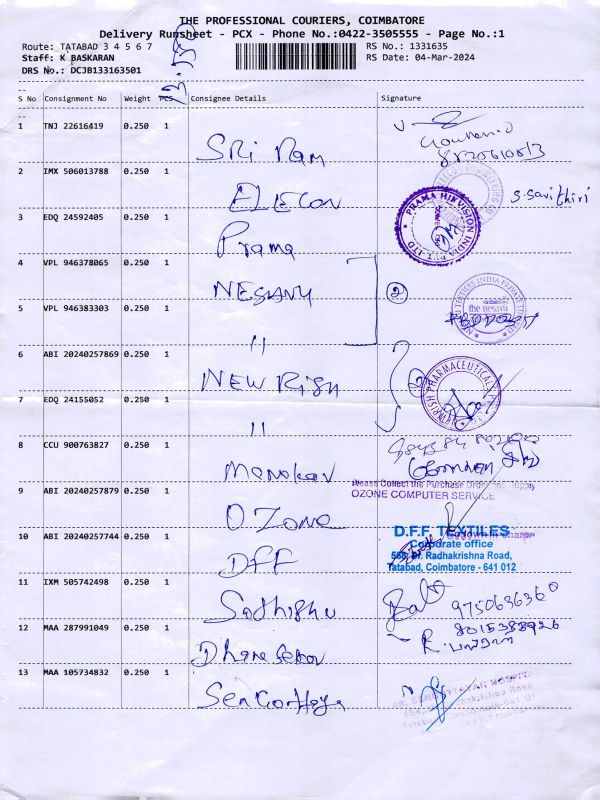 THE PROFESSIONAL COURIERS, COIMBATORE
Delivery Runsheet - PCX - Phone No.:0422-3505555 - Page No.:1
Route: TATABAD 3 4 5 6 7
RS No.: 1331635
Staff: K BASKARAN
RS Date: 04-Mar-2024
DRS No.: DCJB133163501
S No Consignment No Weight PCS Consignee Details Signature
1 TNJ 22616419 0.250 1 SRi Ram
2 IMX 506013788 0.250 1 ELECON S.Savithiri
3 EDQ 24592405 0.250 1 Prama
PRAMA HIKVISION INDIA PVT. LTD
4 VPL 946378065 0.250 1 NESAVU 2
TEXTILES INDIA PRIVATE
the nesavu
5 VPL 946383303 0.250 1 11
6 ABI 20240257869 0.250 1 NEW Rish 2
PHARMACEUTICAL
7 EDQ 24155052 0.250 1 11
8 CCU 900763827 0.250 1 Manokar
Please Collect the Purchase Order and Supply
OZONE COMPUTER SERVICE
9 ABI 20240257879 0.250 1 OZone
D.F.F. TEXTILES
10 ABI 20240257744 0.250 1 DFF
Corporate office
588, Dr. Radhakrishna Road,
Tatabad, Coimbatore - 641 012
11 IXM 505742498 0.250 1 Sathishu
9750636360
12 MAA 287991049 0.250 1 Dhanasekar
8015388926
13 MAA 105734832 0.250 1